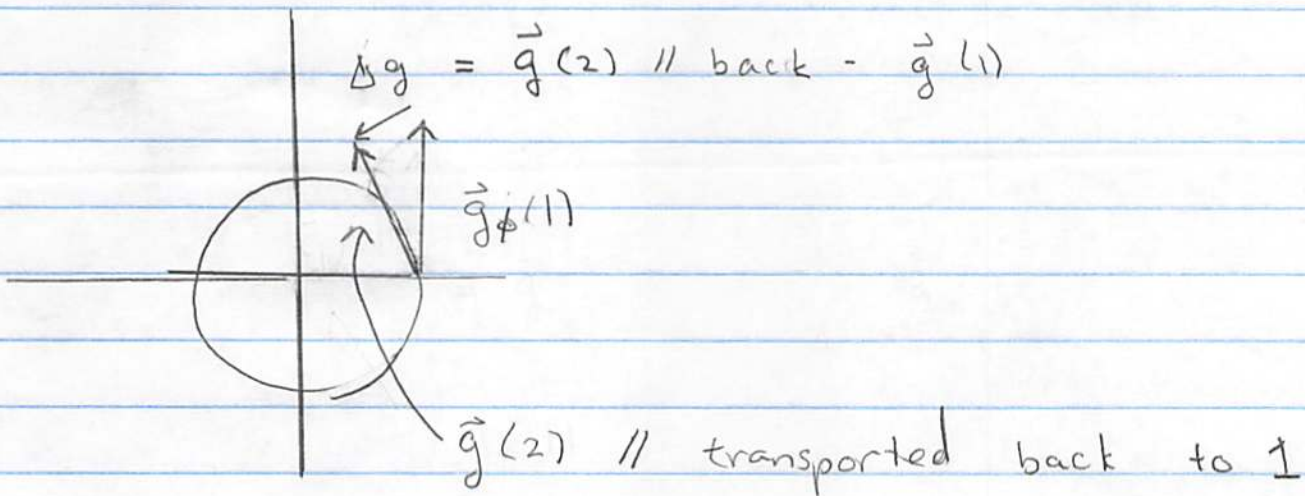 Δg = g⃗(2) // back - g⃗(1)
g⃗ϕ(1)
g⃗(2) // transported back to 1